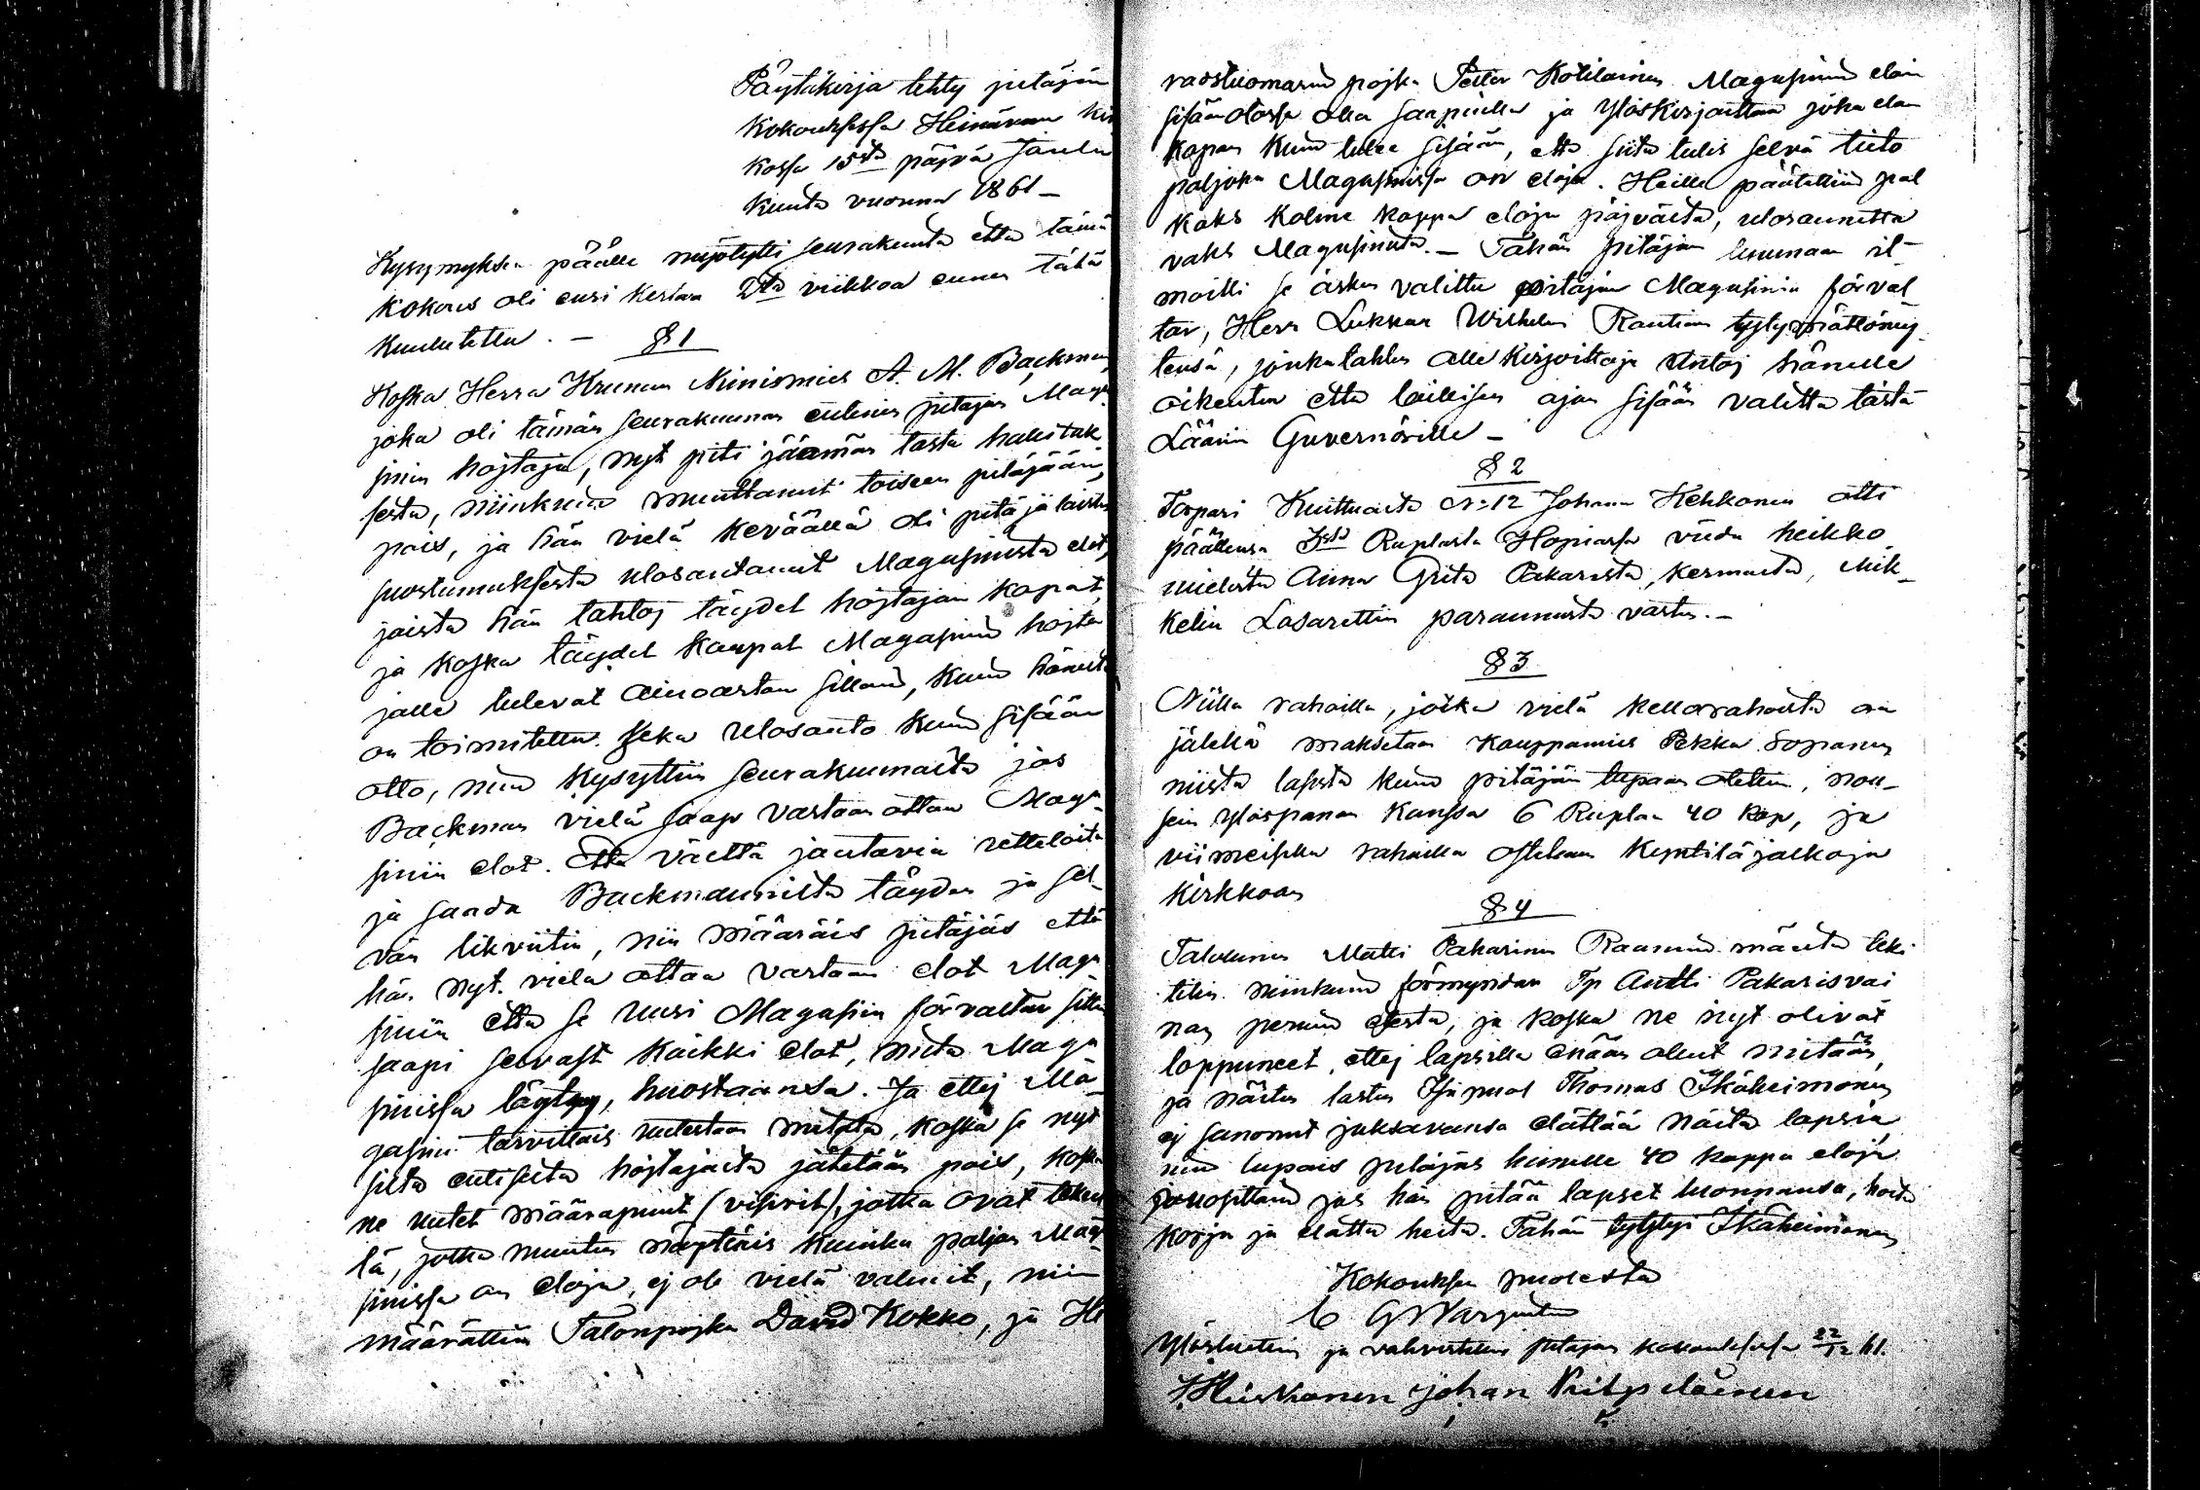 Päytäkirja tehty pitäjän
Kokouksessa Heinäveen kir
kossa 15sta päivä Joulu
kuuta vuonna 1861 –
Kysymyksen päälle myötytti seurakunta että tämä
kokous oli ensi kerran 2ta viikkoa ennen tätä
kuulutettu. –
§ 1
Koska Herra Kruunun Nimismies A. M. Backman,
joka oli tämän seurakunnan entinen pitäjän Maga
sinin hojtaja, nyt piti jäämän tästä hallituk
sesta, niinkuin muuttanut toiseen pitäjääri,
pois, ja hän vielä keväällä oli pitäjäläisten
suostumuksesta ulosantanut Magasinista elot,
joista hän tahtoj täydet hojtajan kapat,
ja koska täydet kaupat Magasinin hojta
jalle tulevat ainoastan silloin, kuin häneltä
on toimitettu sekä ulosanto kuin sisään
otto, niin kysyttiin seurakunnalta jos
Backman vielä saapi vastaan ottaa Maga
sinin elot. Että välttä jäutavia retteloitä
ja saada Backmannilta täyden ja sel
vän likviitin, niin määräis pitäjäs että
hän nyt vielä ottaa vastaan elot Maga
siniin että se uusi Magasiin förvaltar sitte
saapi selvast kaikki elot, mitä Maga
sinissa läytyy, huostaansa. Ja ettej Ma
gasini tarvittais uutestaan mitata, koska se nyt
siltä entiseltä hojtajalta jätetään pois, koska
ne uutet määräpuut (visirit), jotka ovat tekeil
lä, jotka muuten näyttäis kuinka paljon Maga
sinissa on eloja, ej ole vielä valmiit, niin
määrättiin Talonpojka David Kokko, ja He
rastuomarin pojka Petter Kotilainen Magasinin eloin
sisään otossa olla saapuilla ja ylöskirjoittaa joka elon
kapan kuin tulee sisään, että siitä tulis selvä tieto
paljoko Magasinissa on eloja. Heille päätettiin pal
kaks kolme kappa eloja päjvältä, ulosannetta
vaks Magasinista. – Tähän pitäjän luumaan il
moitti se äsken valittu pitäjän Magasinin förval
tar, Herr Lukkar Wilhelm Rautian tytymättömyy
tensä, jonka tähden alle kirjoittaja antoj hänelle
oikeuten että laillisen ajan sisään valitta tästä
Läänin Guvernörille –
§ 2
Torpari Kuittuasta No 12 Johan Kehkonen otti
päällensä 3sta Ruplasta Hopiassa viedä heikko
mielistä Anna Grita Pakarista, Kermasta, Mik
kelin Lasarettiin parannusta varten. –
§ 3
Niillä rahoilla, jotka vielä kellorahoista on
jälellä maksetaan kauppamies Pekka Sopanen
niistä lasista kuin pitäjän tupaan otettiin, nou
sein ylöspanon kanssa 6 Ruplaa 40 kop, ja
viimeisillä rahoilla ostetaan kyntiläjalkoja
kirkkoon
§ 4
Talolinen Matti Pakarinen Raanminmäeltä teki
tilin niinkuin förmyndar Tp Antti Pakarisvai
nan peruin elosta, ja koska ne nyt olivat
loppuneet, ettej lapsilla enään ollut mitään,
ja näiten lasten Isipuol Thomas Ikäheimonen
ej sanonut jaksavansa elättää näitä lapsia,
niin lupais pitäjäs hänelle 40 kappa eloja
vuosittain jos hän pitää lapset luonnansa, hoita
korja ja elätta heitä. Tähän tytytyi Ikäheimonen
Kokouksen puolesta
C G Wargentin
Ylösluettiin ja vahvistettiin pitäjän kokouksessa 22/12 61.
Johan